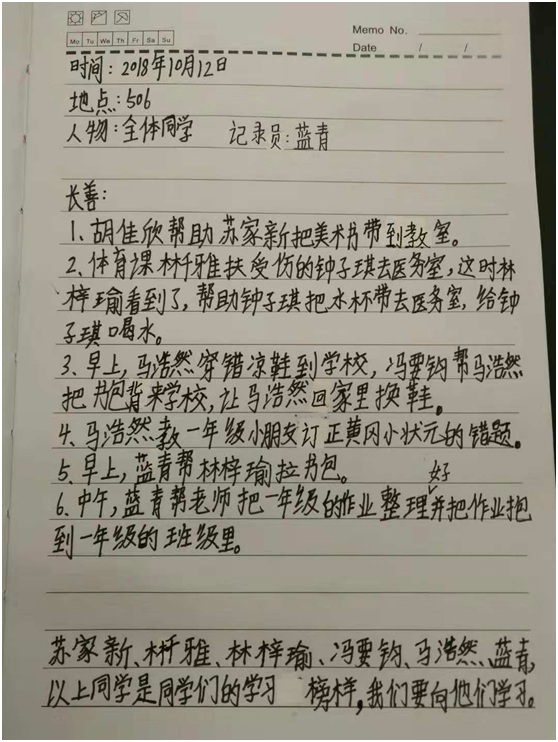 Memo No.
Mo Tu We Th Fr Sa Su
Date / /
时间：2018年10月12日
地点：506
人物：全体同学 记录员：蓝青
长善：
1、胡佳欣帮助苏家新把美术书带到教室。
2、体育课林千雅扶受伤的钟子琪去医务室，这时林
梓瑜看到了，帮助钟子琪把水杯带去医务室，给钟
子琪喝水。
3、早上，马浩然穿错凉鞋到学校，冯要钧帮马浩然
把书包背来学校，让马浩然回家里换鞋。
4、马浩然教一年级小朋友订正黄冈小状元的错题。
5、早上，蓝青帮林梓瑜拉书包。
好
6、中午，蓝青帮老师把一年级的作业整理并把作业抱
到一年级的班级里。
苏家新、林千雅、林梓瑜、冯要钧、马浩然、蓝青，
以上同学是同学们的学习 榜样，我们要向他们学习。